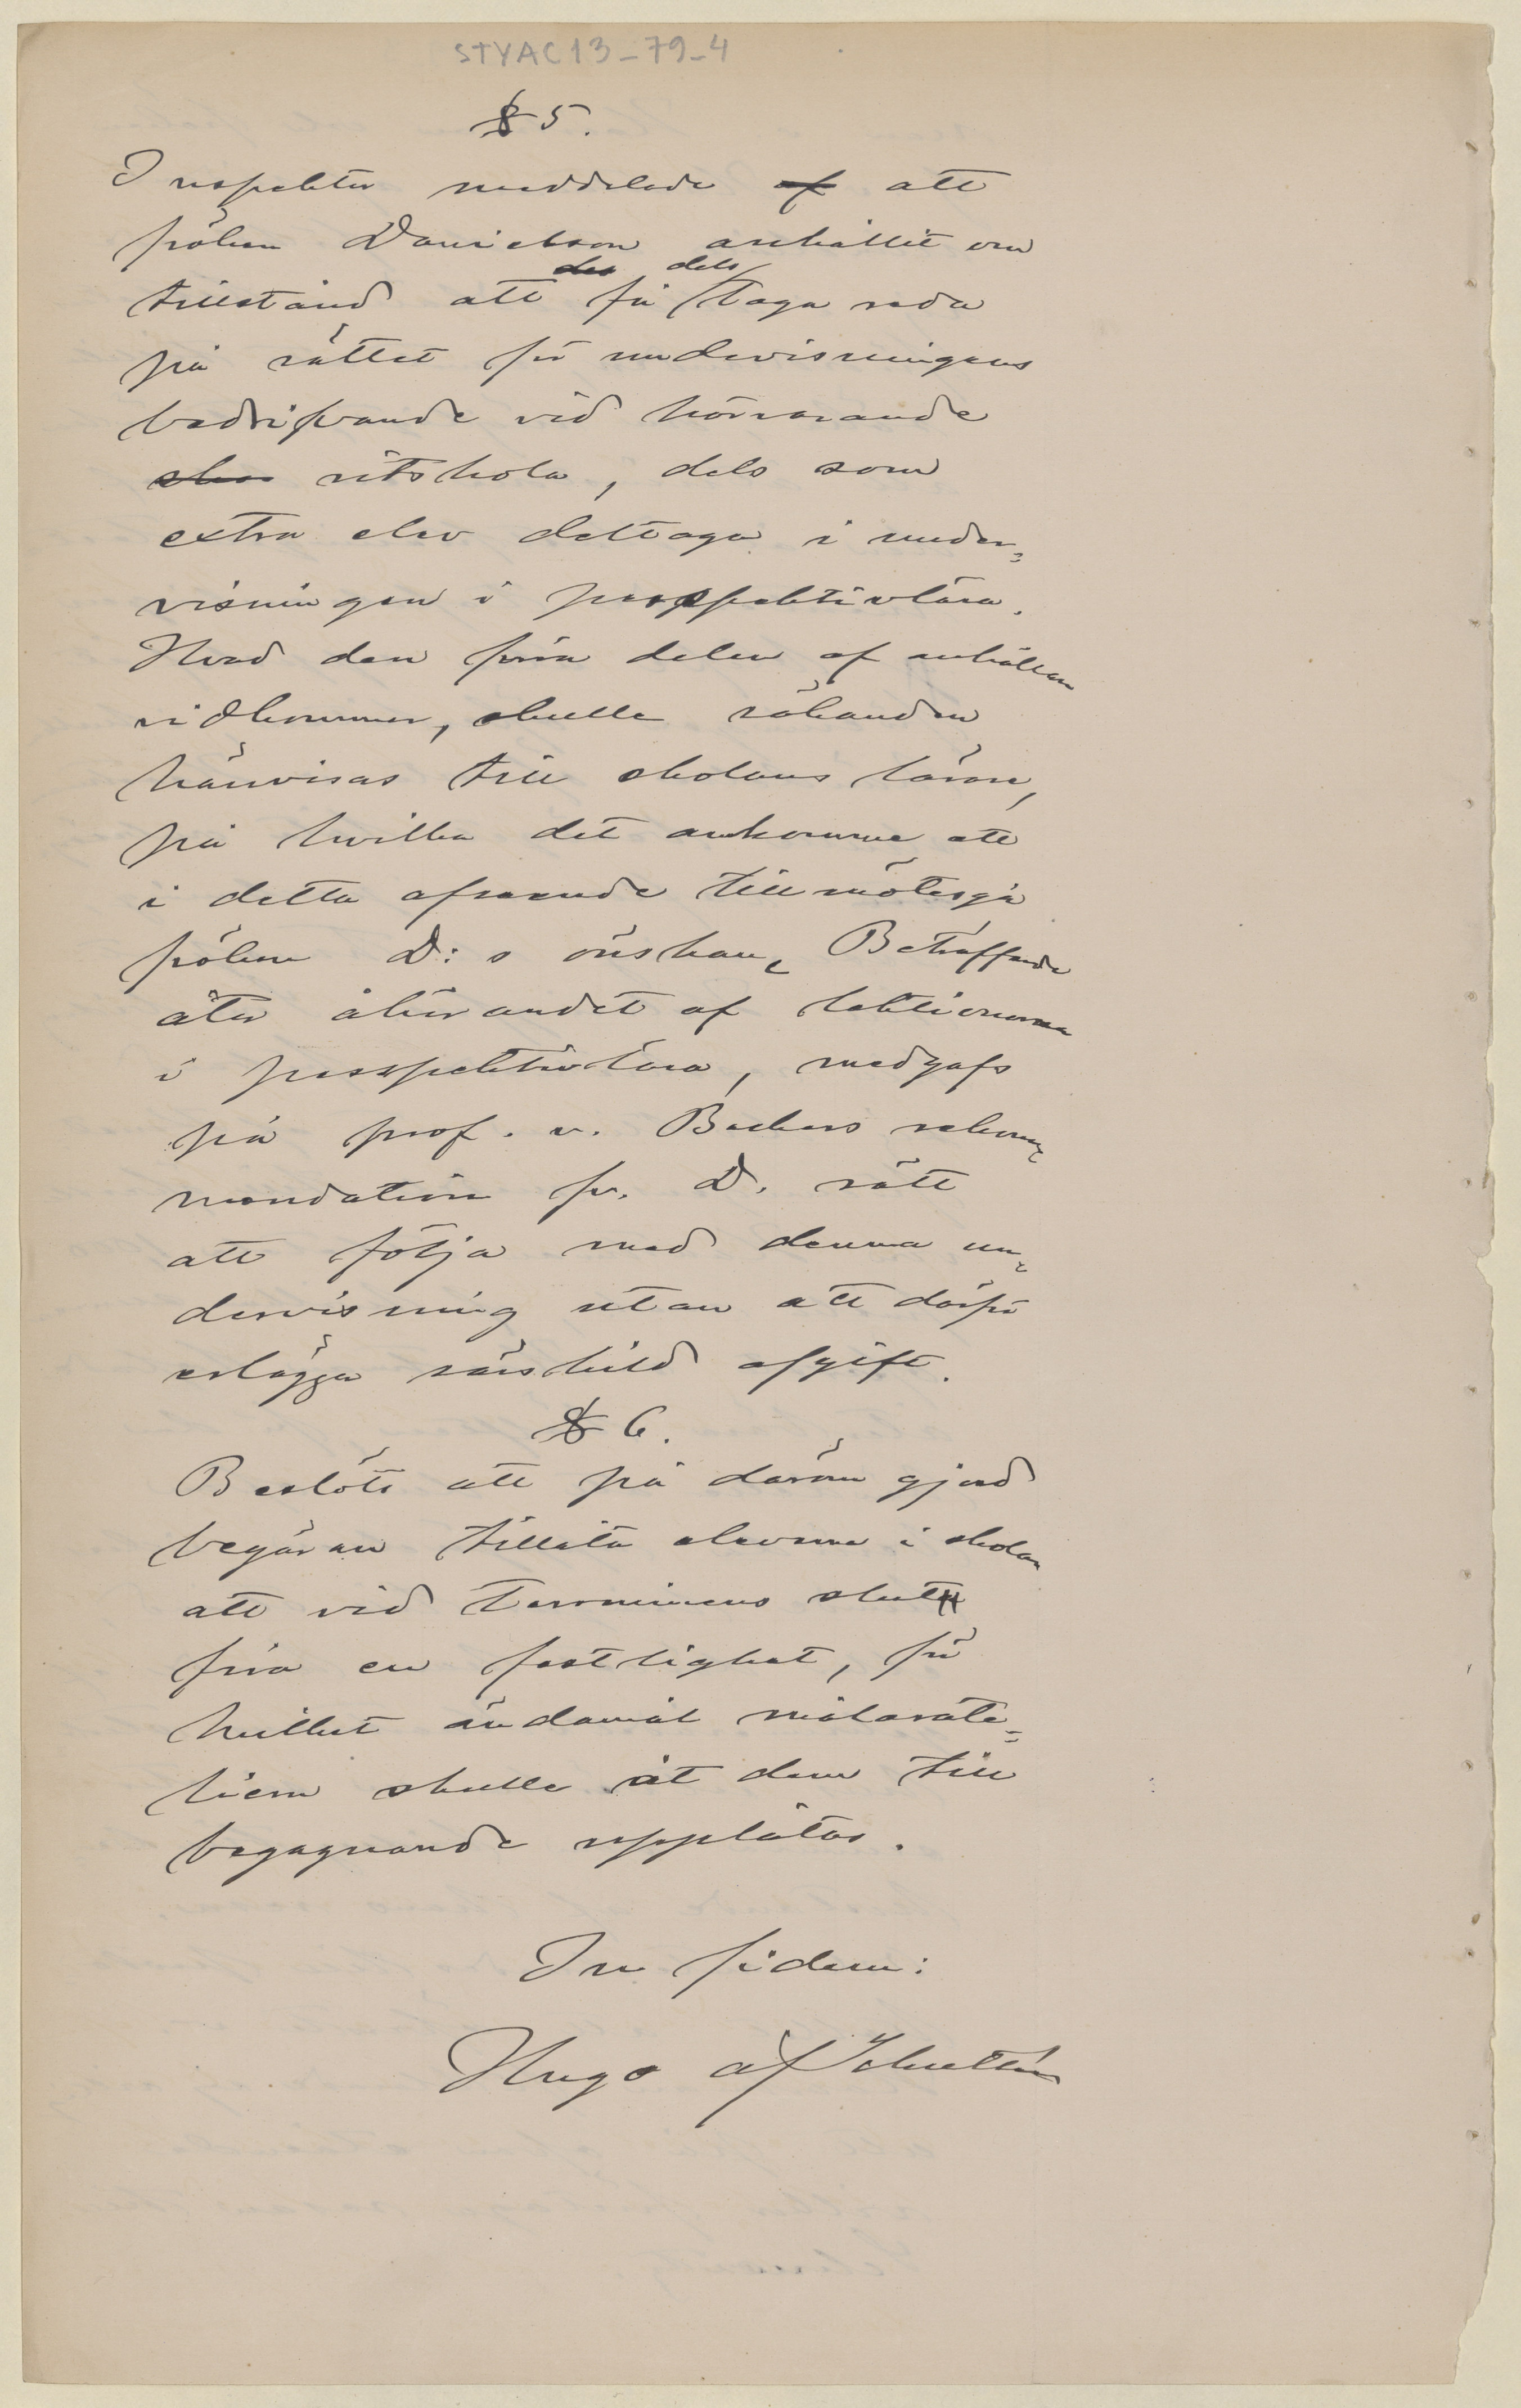 STYAC13_79_4
§ 5.
Inspektor meddelade af att
fröken Danielson anhållit om
des dels
tillstånd att få taga reda
på sättet för undervisningens
bedrifvande vid härvarande
skos ritskola, dels som
extra elev deltaga i under=
visningen i perspektivlära.
Hvad den förra delen af anhållan
vidkommer, skulle sökanden
hänvisas till skolans lärare,
på hvilka det ankomme att
i detta afseende tillmötesgå
fröken D:s önskan. Beträffande
åter åhörandet af lektionerna
i perspektivlära, medgafs
på prof. v. Beckers rekom=
mendation fr. D. rätt
att följa med denna un=
dervisning utan att därför
erlägga särskild afgift.
§ 6.
Beslöts att på därom gjord
begäran tillåta eleverna i skolan
att vid terminens slut
fira en festlighet, för
hvilket ändamål målarate=
liern skulle åt dem till
begagnande upplåtas.
In fidem:
Hugo af Schultén